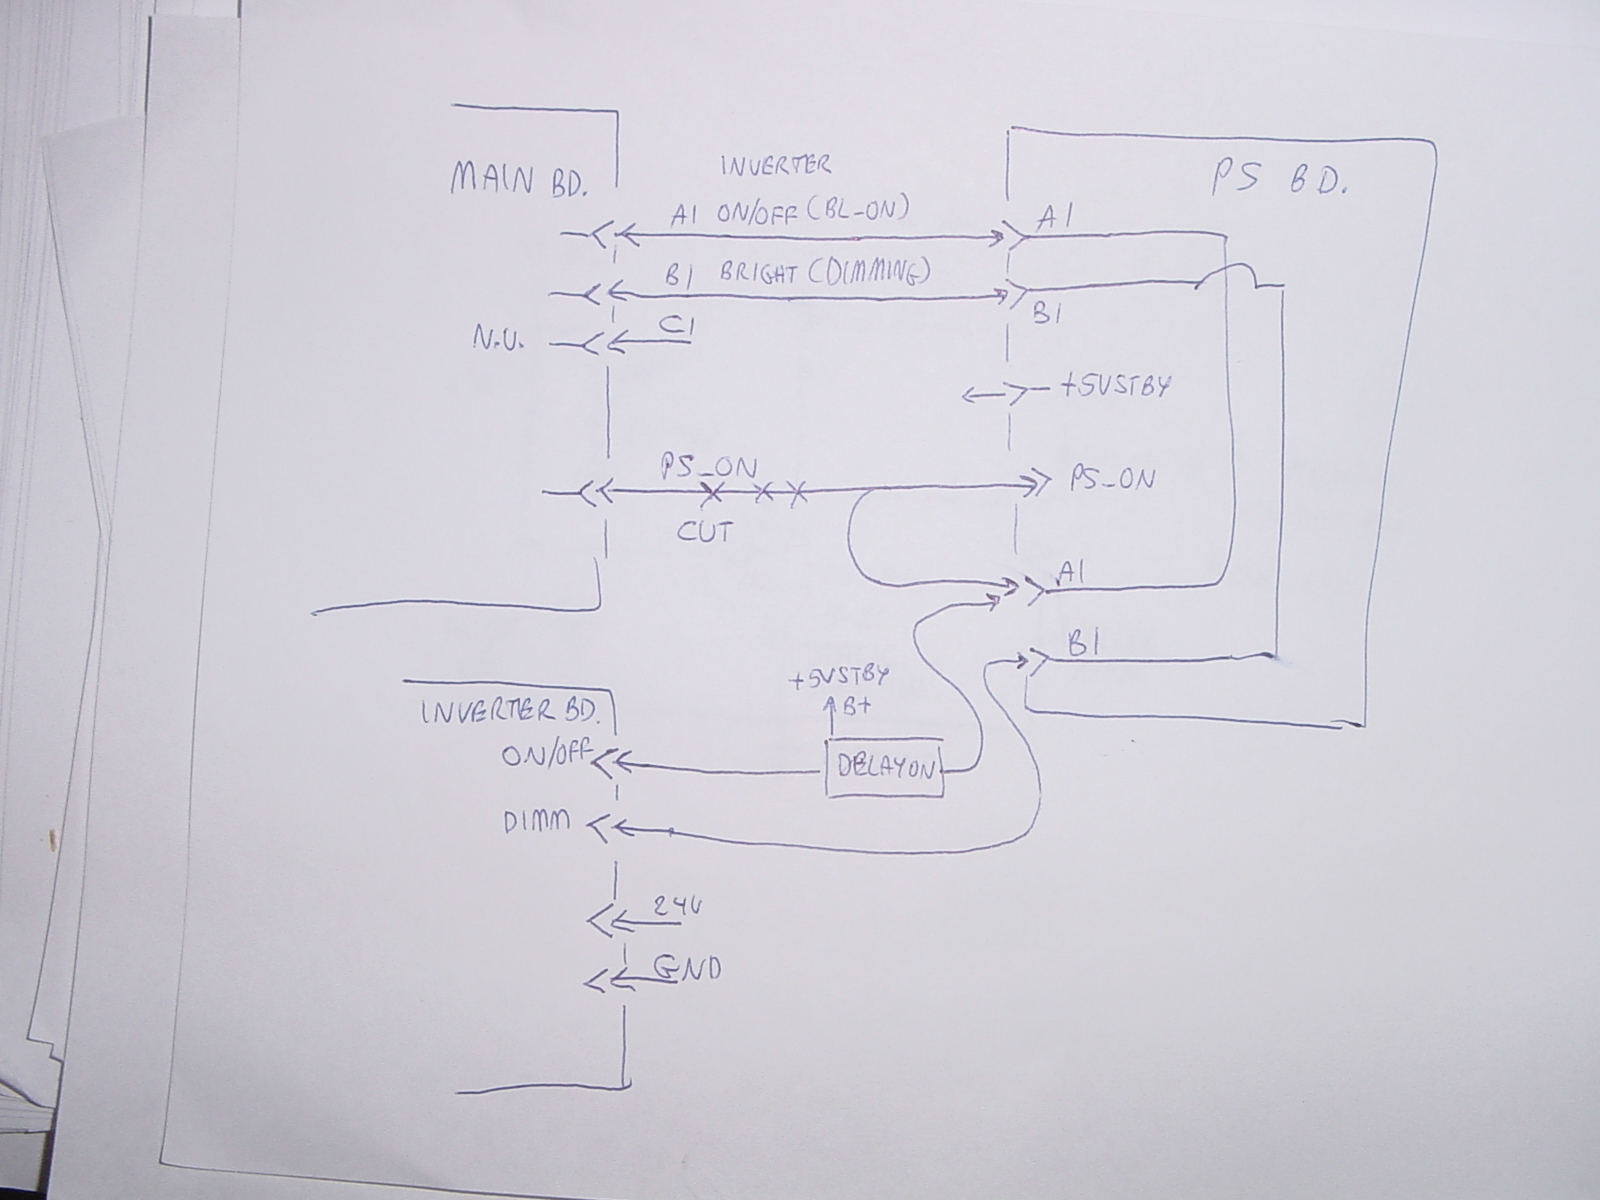 MAIN BD.
INVERTER
A1 ON/OFF (BL-ON)
B1 BRIGHT (DIMMING)
N.U.
C1
PS_ON
CUT
PS BD.
A1
B1
+5VSTBY
PS_ON
A1
B1
INVERTER BD.
ON/OFF
DIMM
24V
GND
+5VSTBY
B+
DELAYON